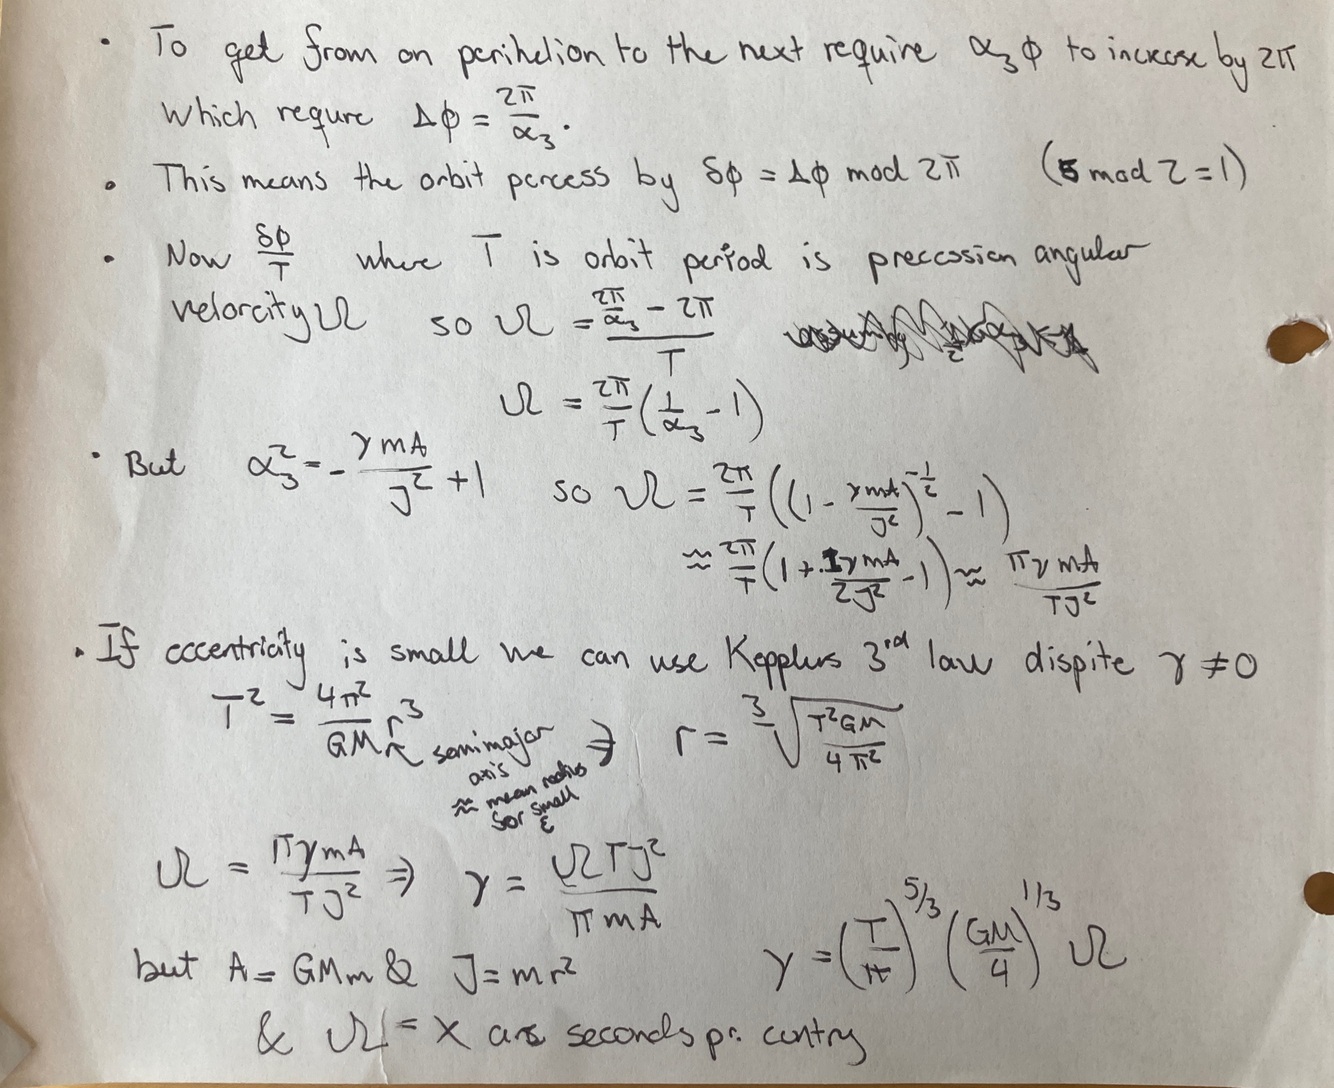 • To get from on perihelion to the next require α₃ϕ to increase by 2π
which requre Δϕ = 2π/α₃.
• This means the orbit percess by δϕ = Δϕ mod 2π (5 mod 2 = 1)
• Now δϕ/T where T is orbit period is precession angular
velorcity Ω so Ω = (2π/α₃ - 2π)/T
Ω = 2π/T (1/α₃ - 1)
• But α₃² = - γmA/J² + 1 so Ω = 2π/T ((1 - γmA/J²)^(-1/2) - 1)
≈ 2π/T (1 + 1γmA/2J² - 1) ≈ πγmA/TJ²
• If eccentricity is small we can use Kepplers 3rd law dispite γ ≠ 0
T² = 4π²/GM r³ ⇒ r = ³√(T²GM/4π²)
semimajor
axis
≈ mean radius
for small
ε
Ω = πγmA/TJ² ⇒ γ = ΩTJ²/πmA
but A = GMm & J = mr² γ = (T/π)^(5/3) (GM/4)^(1/3) Ω
& Ω = X arc seconds pr. centry